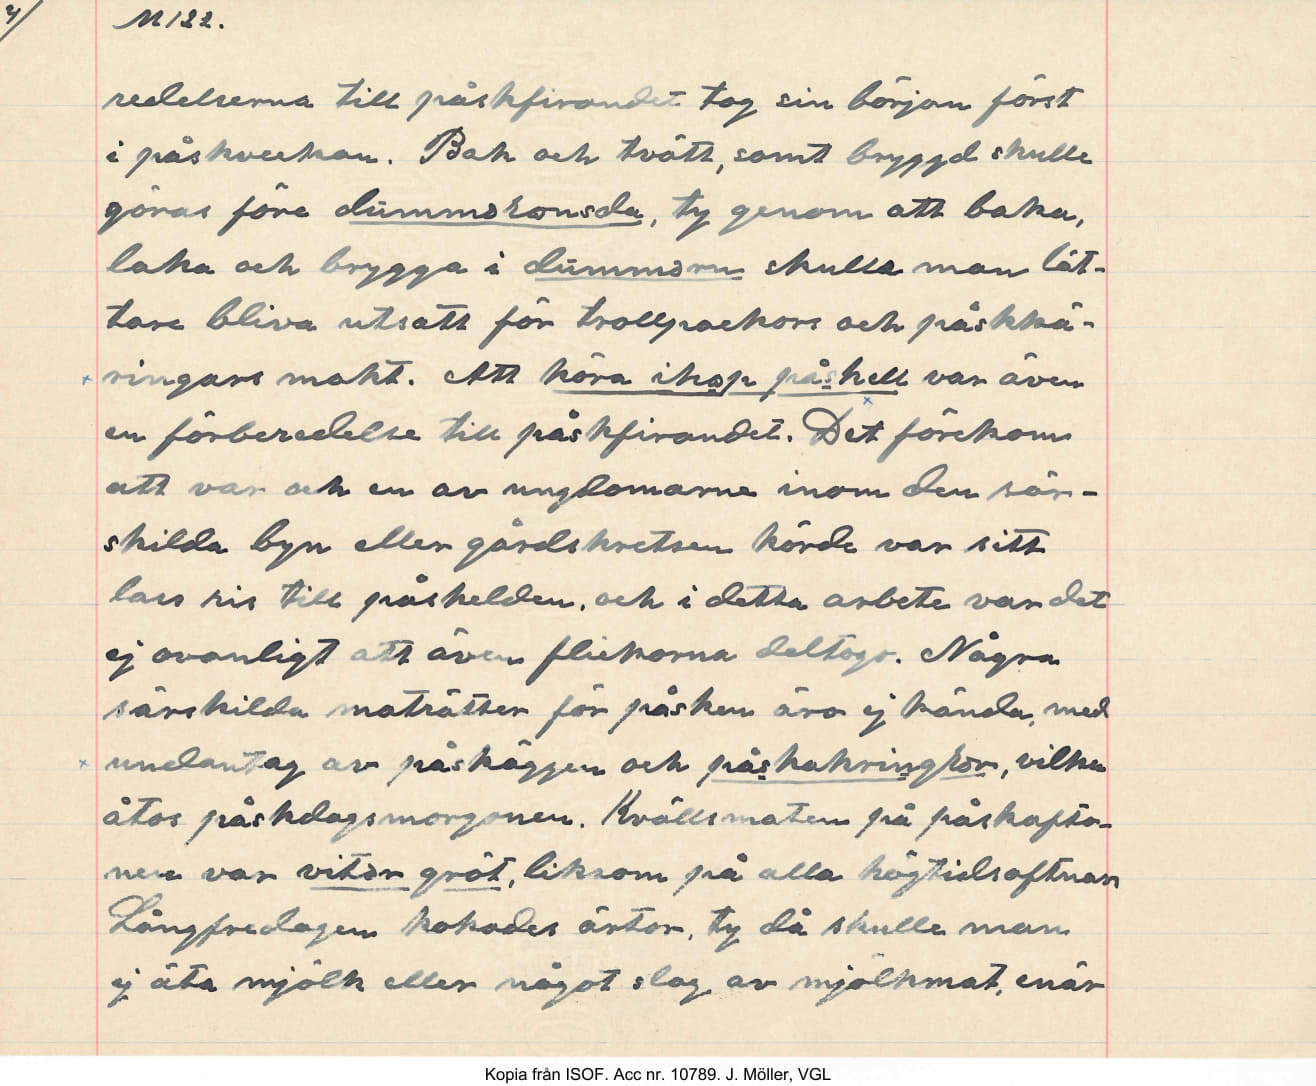 4/
M 122.
redelserna till påskfirandet tog sin början först
i påskveckan. Bak och tvätt, samt bryggd skulle
göras före dummeronsda, ty genom att baka,
laka och brygga i dummern skulle man lät-
tare bliva utsatt för trollpackors och påskkä-
ringars makt. Att köra ihop påskell var även
en förberedelse till påskfirandet. Det förekom
att var och en av ungdomarne inom den sär-
skilda byn eller gårdskretsen körde var sitt
lass ris till påskelden, och i detta arbete var det
ej ovanligt att även flickorna deltogo. Några
särskilda maträtter för påsken äro ej kända, med
undantag av påskäggen och påskakringlor, vilka
åtos påskdagsmorgonen. Kvällsmaten på påskafto-
nen var vitǝr gröt, liksom på alla högtidsaftnar
Långfredagen kokades ärtor, ty då skulle man
ej äta mjölk eller något slag av mjölkmat, enär
Kopia från ISOF. Acc nr. 10789. J. Möller, VGL